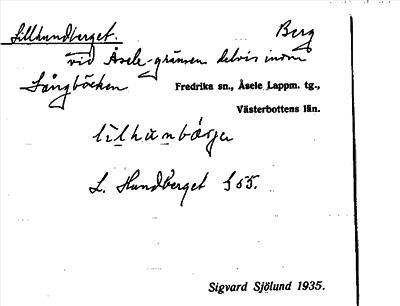 Lillhundberget. Berg
vid Åsele-gränsen delvis inom
Långbäcken Fredrika sn., Åsele Lappm. tg.,
Västerbottens län.
L. Hundberget S 55.
Sigvard Sjölund 1935.